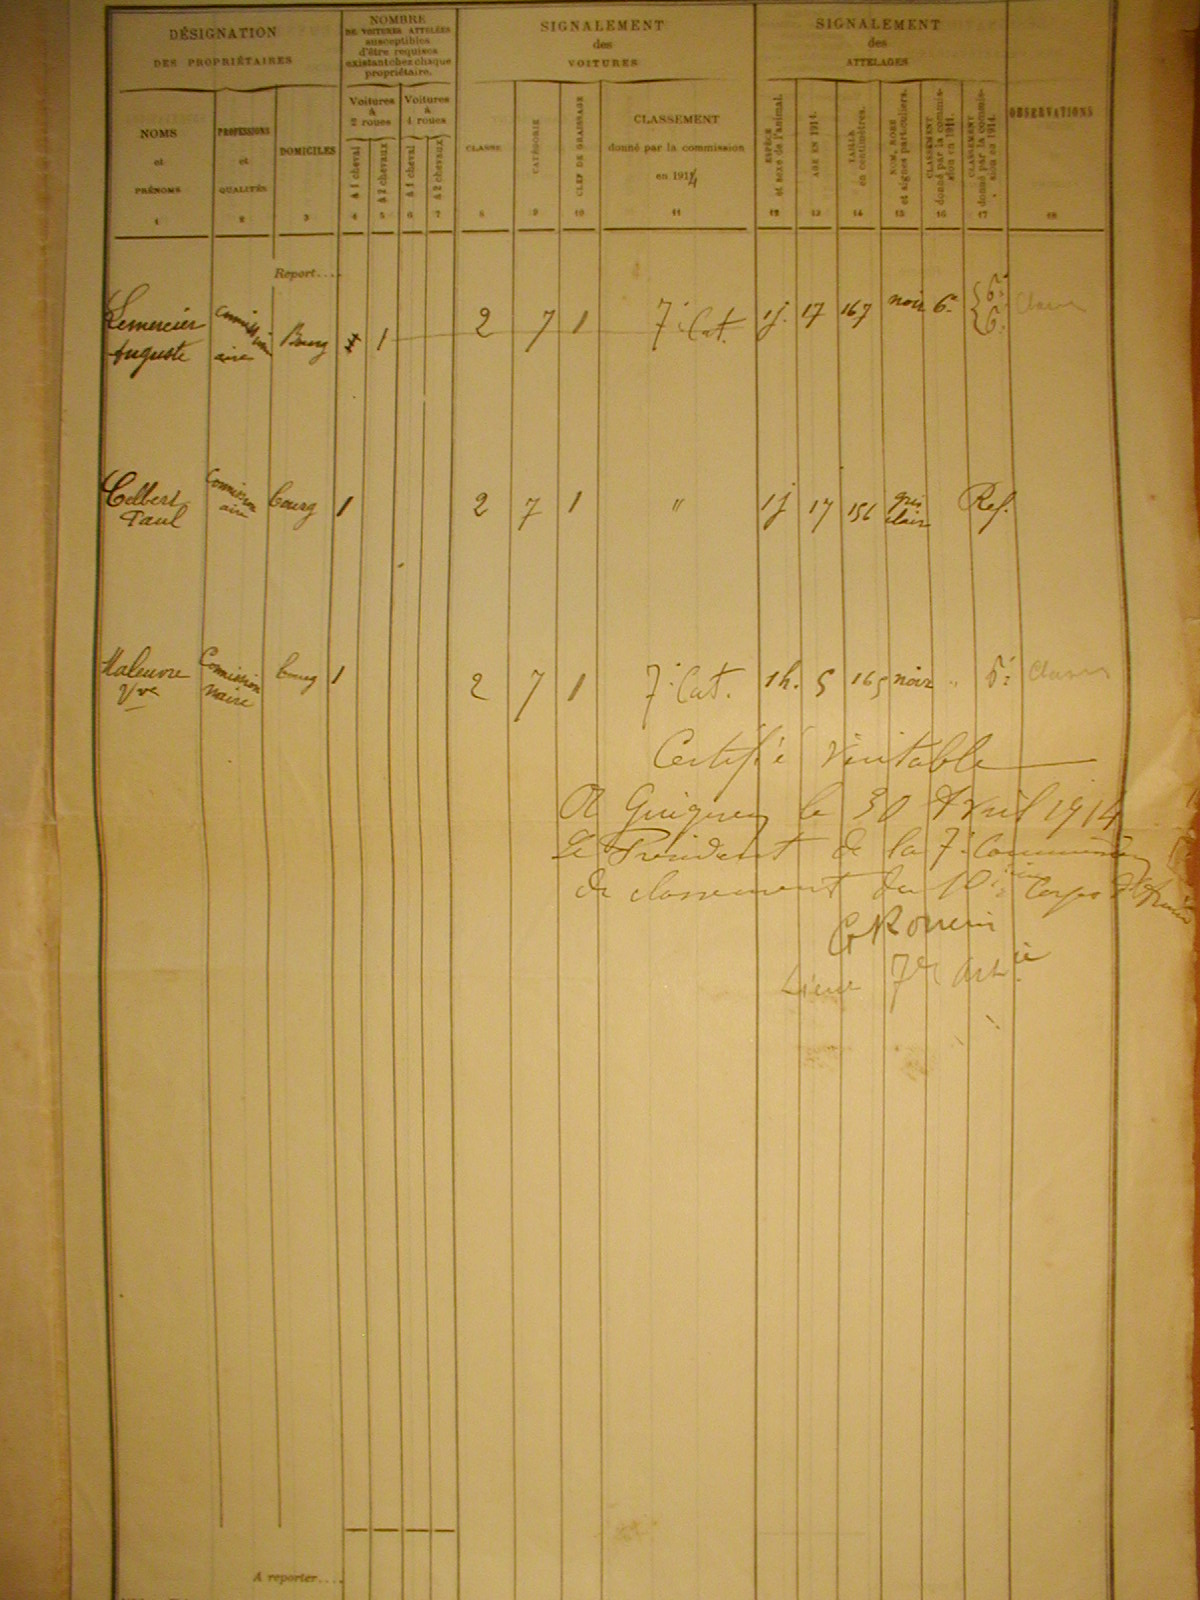 DÉSIGNATION
DES PROPRIÉTAIRES
NOMBRE
DE VOITURES ATTELÉES
susceptibles
d'être requises
existant chez chaque
propriétaire.
SIGNALEMENT
des
VOITURES
SIGNALEMENT
des
ATTELAGES
OBSERVATIONS
NOMS
et
PRÉNOMS
PROFESSIONS
et
QUALITÉS
DOMICILES
Voitures
à
2 roues
Voitures
à
4 roues
à 1 cheval
à 2 chevaux
à 1 cheval
à 2 chevaux
CLASSE
CATÉGORIE
CLEF DE GRAISSAGE
CLASSEMENT
donné par la commission
en 1914
ESPÈCE
et sexe de l'animal.
AGE EN 1914.
TAILLE
en centimètres.
NOM, ROBE
et signes particuliers.
CLASSEMENT
donné par la commis-
sion en 1911.
CLASSEMENT
donné par la commis-
sion en 1914.
1 2 3 4 5 6 7 8 9 10 11 12 13 14 15 16 17 18
Report....
Lemercier Commission Bourg 1 2 7 1 7e Cat. 1 j. 17 167 noir 6e { 6e
Auguste aire 6e
Commission bourg 1 2 7 1 " 1 j 17 156 gris Ref.
Paul aire clair
Maleuvre Commission bourg 1 2 7 1 7e Cat. 1 h. 5 165 noir " 6e
Vve naire
Certifié Véritable
A Guignen le 30 Avril 1914
Le Président de la 7e Commission
de classement du 10ième Corps d'Armée
Lieut 7e Artie
A reporter....